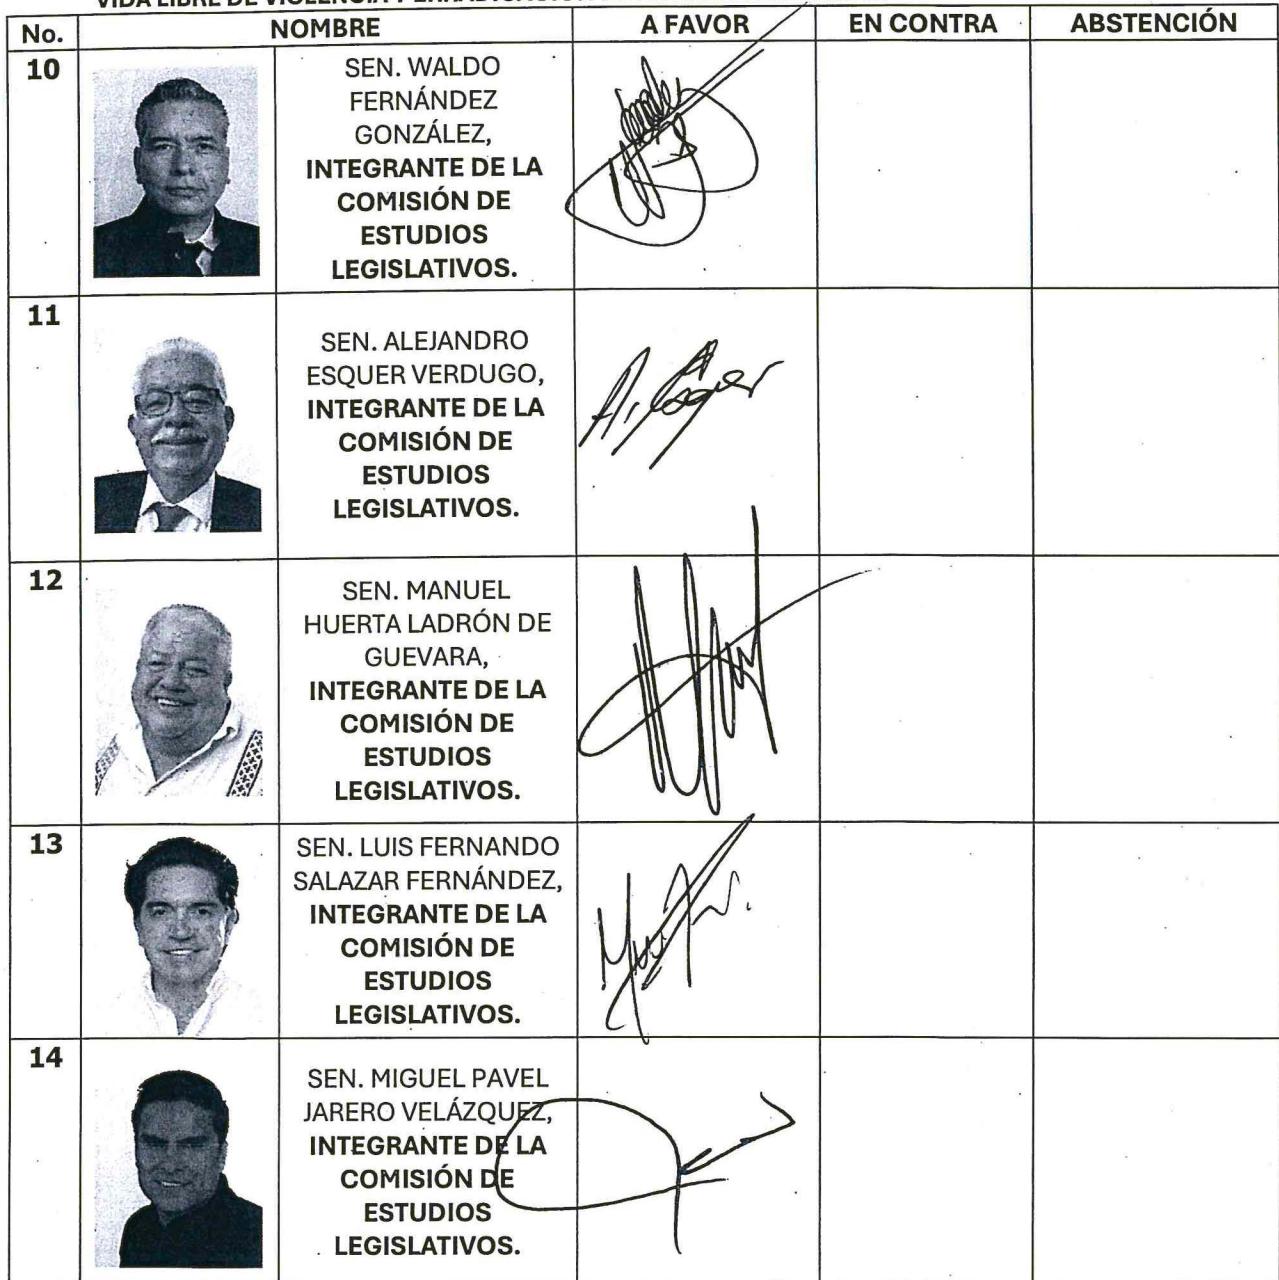 VIDA LIBRE DE VIOLENCIA Y ERRADICACIÓN
No. NOMBRE A FAVOR EN CONTRA ABSTENCIÓN
10
SEN. WALDO
FERNÁNDEZ
GONZÁLEZ,
INTEGRANTE DE LA
COMISIÓN DE
ESTUDIOS
LEGISLATIVOS.
11
SEN. ALEJANDRO
ESQUER VERDUGO,
INTEGRANTE DE LA
COMISIÓN DE
ESTUDIOS
LEGISLATIVOS.
12
SEN. MANUEL
HUERTA LADRÓN DE
GUEVARA,
INTEGRANTE DE LA
COMISIÓN DE
ESTUDIOS
LEGISLATIVOS.
13
SEN. LUIS FERNANDO
SALAZAR FERNÁNDEZ,
INTEGRANTE DE LA
COMISIÓN DE
ESTUDIOS
LEGISLATIVOS.
14
SEN. MIGUEL PAVEL
JARERO VELÁZQUEZ,
INTEGRANTE DE LA
COMISIÓN DE
ESTUDIOS
LEGISLATIVOS.